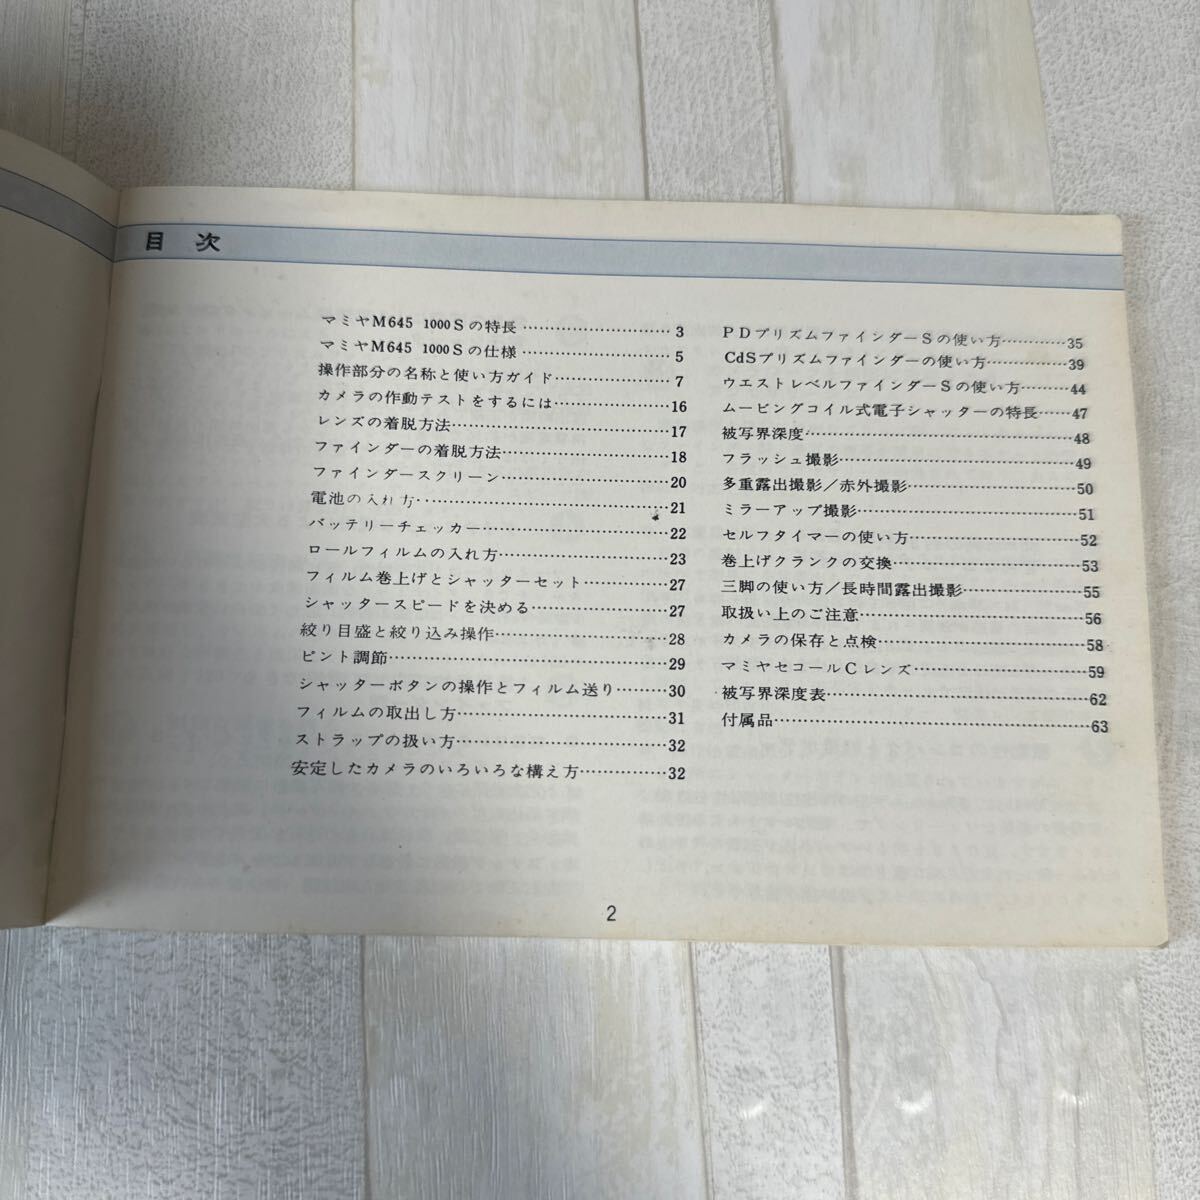 目 次
マミヤM645 1000Sの特長……………………3
マミヤM645 1000Sの仕様……………………5
操作部分の名称と使い方ガイド………………7
カメラの作動テストをするには………………16
レンズの着脱方法………………………………17
ファインダーの着脱方法………………………18
ファインダースクリーン………………………20
電池の入れ方……………………………………21
バッテリーチェッカー…………………………22
ロールフィルムの入れ方………………………23
フィルム巻上げとシャッターセット…………27
シャッタースピードを決める…………………27
絞り目盛と絞り込み操作………………………28
ピント調節………………………………………29
シャッターボタンの操作とフィルム送り……30
フィルムの取出し方……………………………31
ストラップの扱い方……………………………32
安定したカメラのいろいろな構え方…………32
PDプリズムファインダーSの使い方…………35
CdSプリズムファインダーの使い方…………39
ウエストレベルファインダーSの使い方……44
ムービングコイル式電子シャッターの特長…47
被写界深度………………………………………48
フラッシュ撮影…………………………………49
多重露出撮影/赤外撮影………………………50
ミラーアップ撮影………………………………51
セルフタイマーの使い方………………………52
巻上げクランクの交換…………………………53
三脚の使い方/長時間露出撮影………………55
取扱い上のご注意………………………………56
カメラの保存と点検……………………………58
マミヤセコールCレンズ………………………59
被写界深度表……………………………………62
付属品……………………………………………63
2